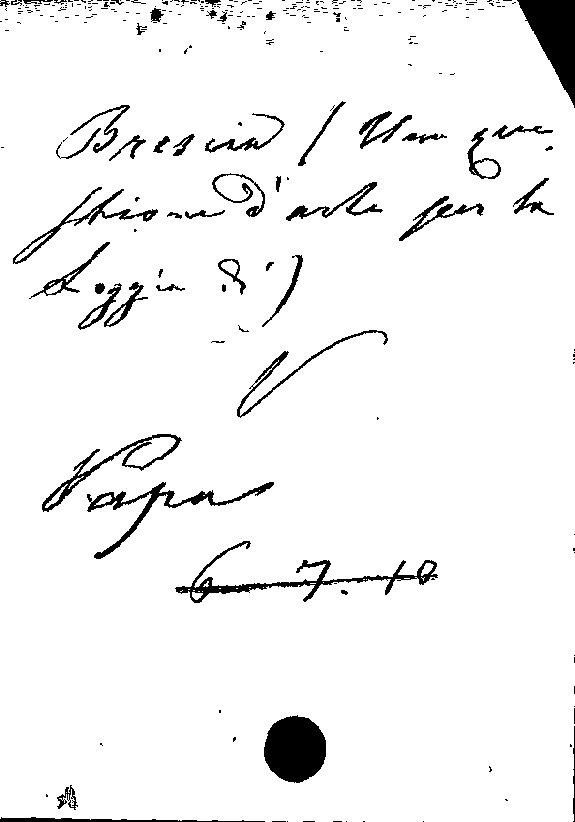 Brescia (Una que-
stione d'arte per la
Loggia di)
V
Papa
6 7. 10